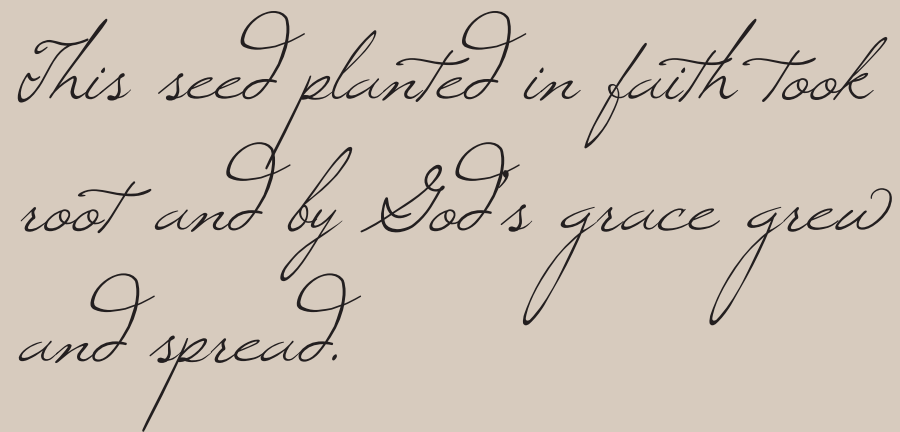 This seed planted in faith took
root and by God's grace grew
and spread.